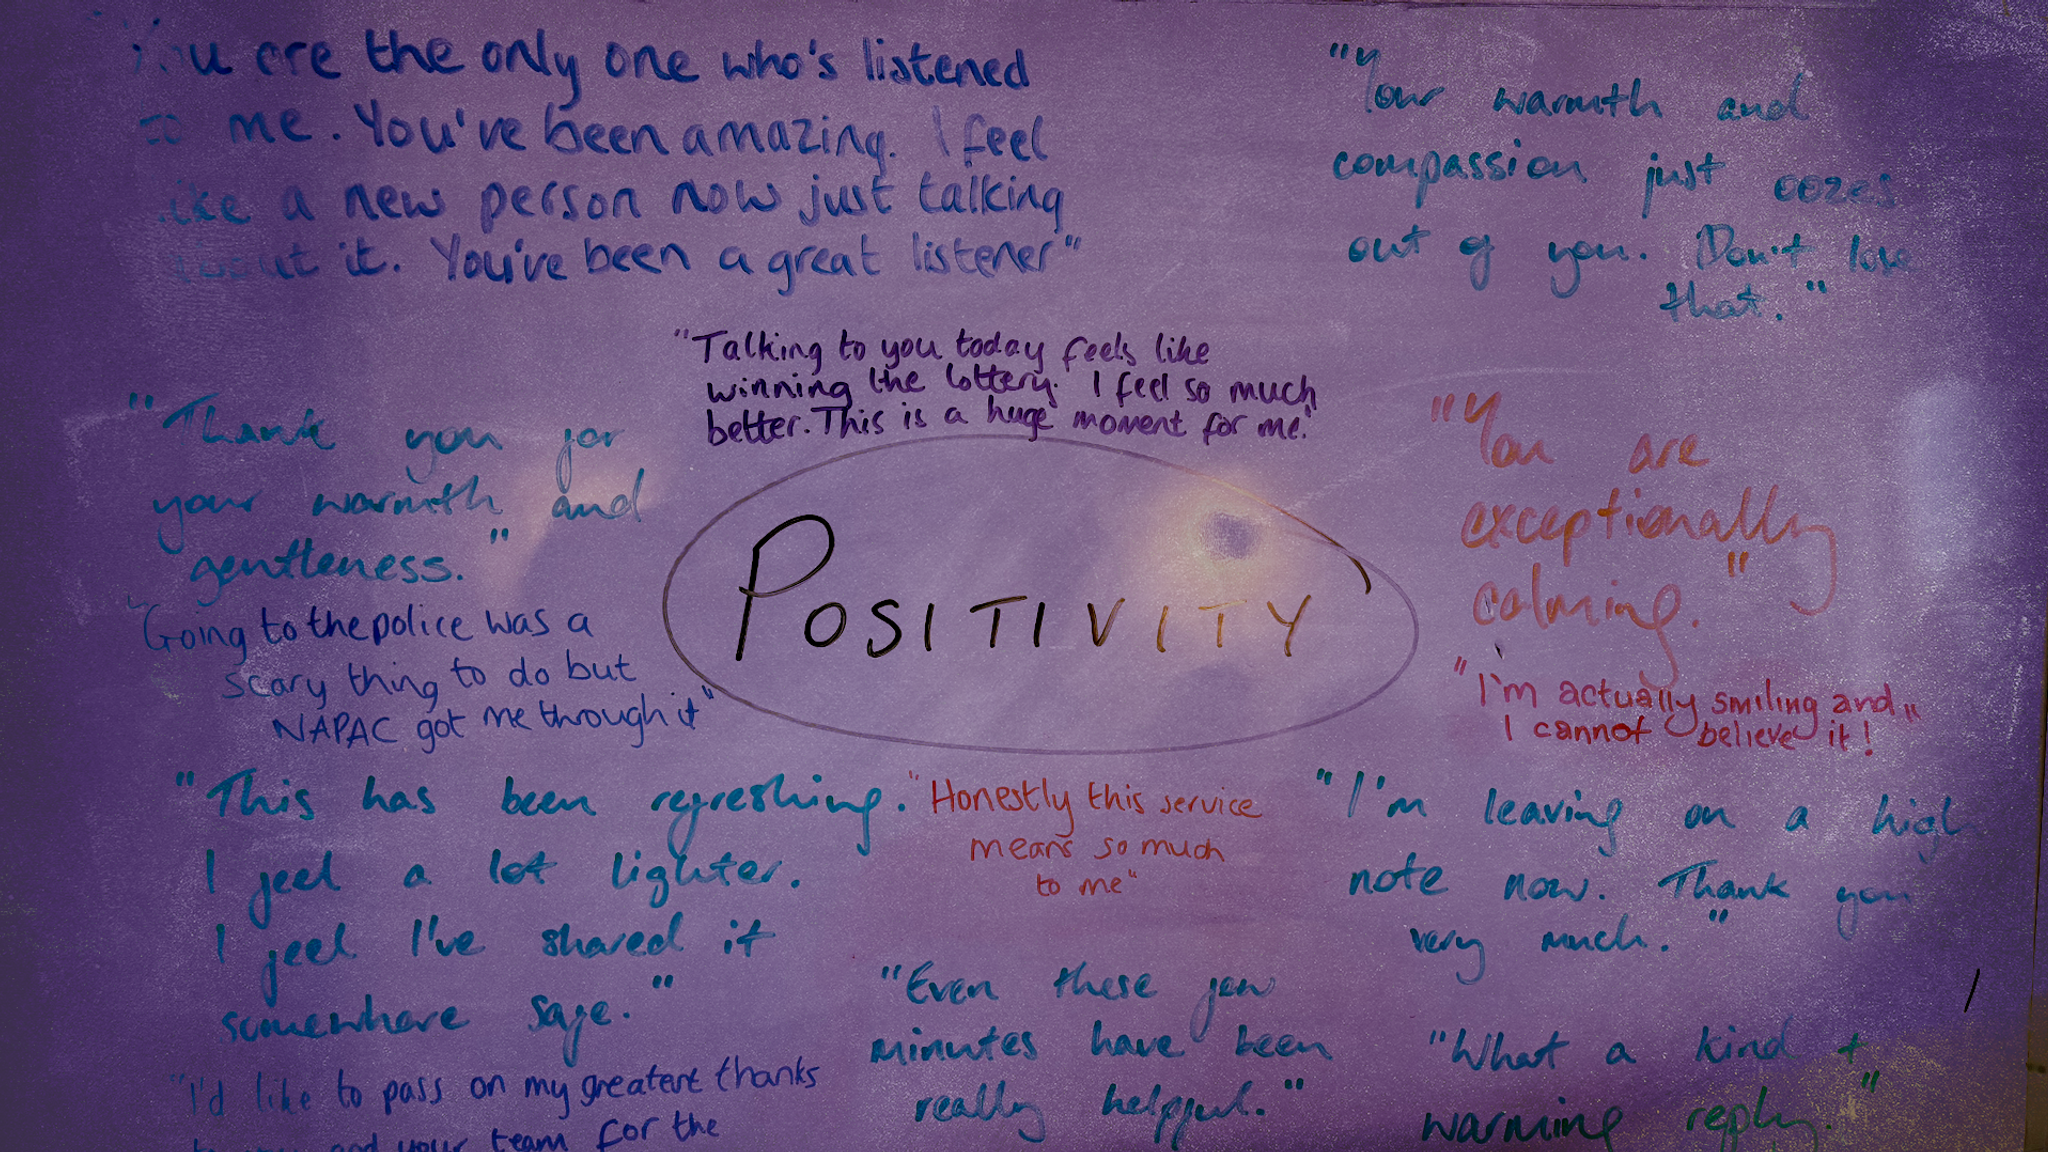 You are the only one who's listened
to me. You've been amazing. I feel
like a new person now just talking
about it. You've been a great listener"
"Your warmth and
compassion just oozes
out of you. Don't lose
that."
"Talking to you today feels like
winning the lottery. I feel so much
better. This is a huge moment for me."
"Thank you for
your warmth and
gentleness."
"You are
exceptionally
calming."
POSITIVITY
"Going to the police was a
scary thing to do but
NAPAC got me through it"
"I'm actually smiling and
I cannot believe it!"
"This has been refreshing.
I feel a lot lighter.
I feel I've shared it
somewhere safe."
"Honestly this service
means so much
to me"
"I'm leaving on a high
note now. Thank you
very much."
"Even these few
minutes have been
really helpful."
"What a kind +
warming reply."
"I'd like to pass on my greatest thanks
to you and your team for the